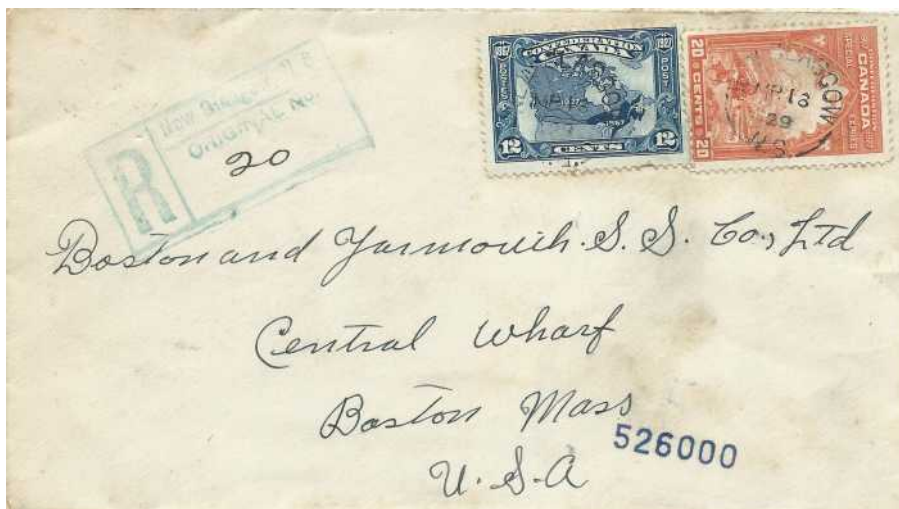 New Glasgow, N.S.
ORIGINAL No.
R
20
1867 CONFEDERATION 1927
CANADA
POSTES POST
12 CENTS 12
CANADA
SPECIAL
EXPRÈS
20 CENTS 20
GLASGOW
AP 13
29
N.S.
Boston and Yarmouth S. S. Co., Ltd
Central Wharf
Boston Mass
U.S.A
526000